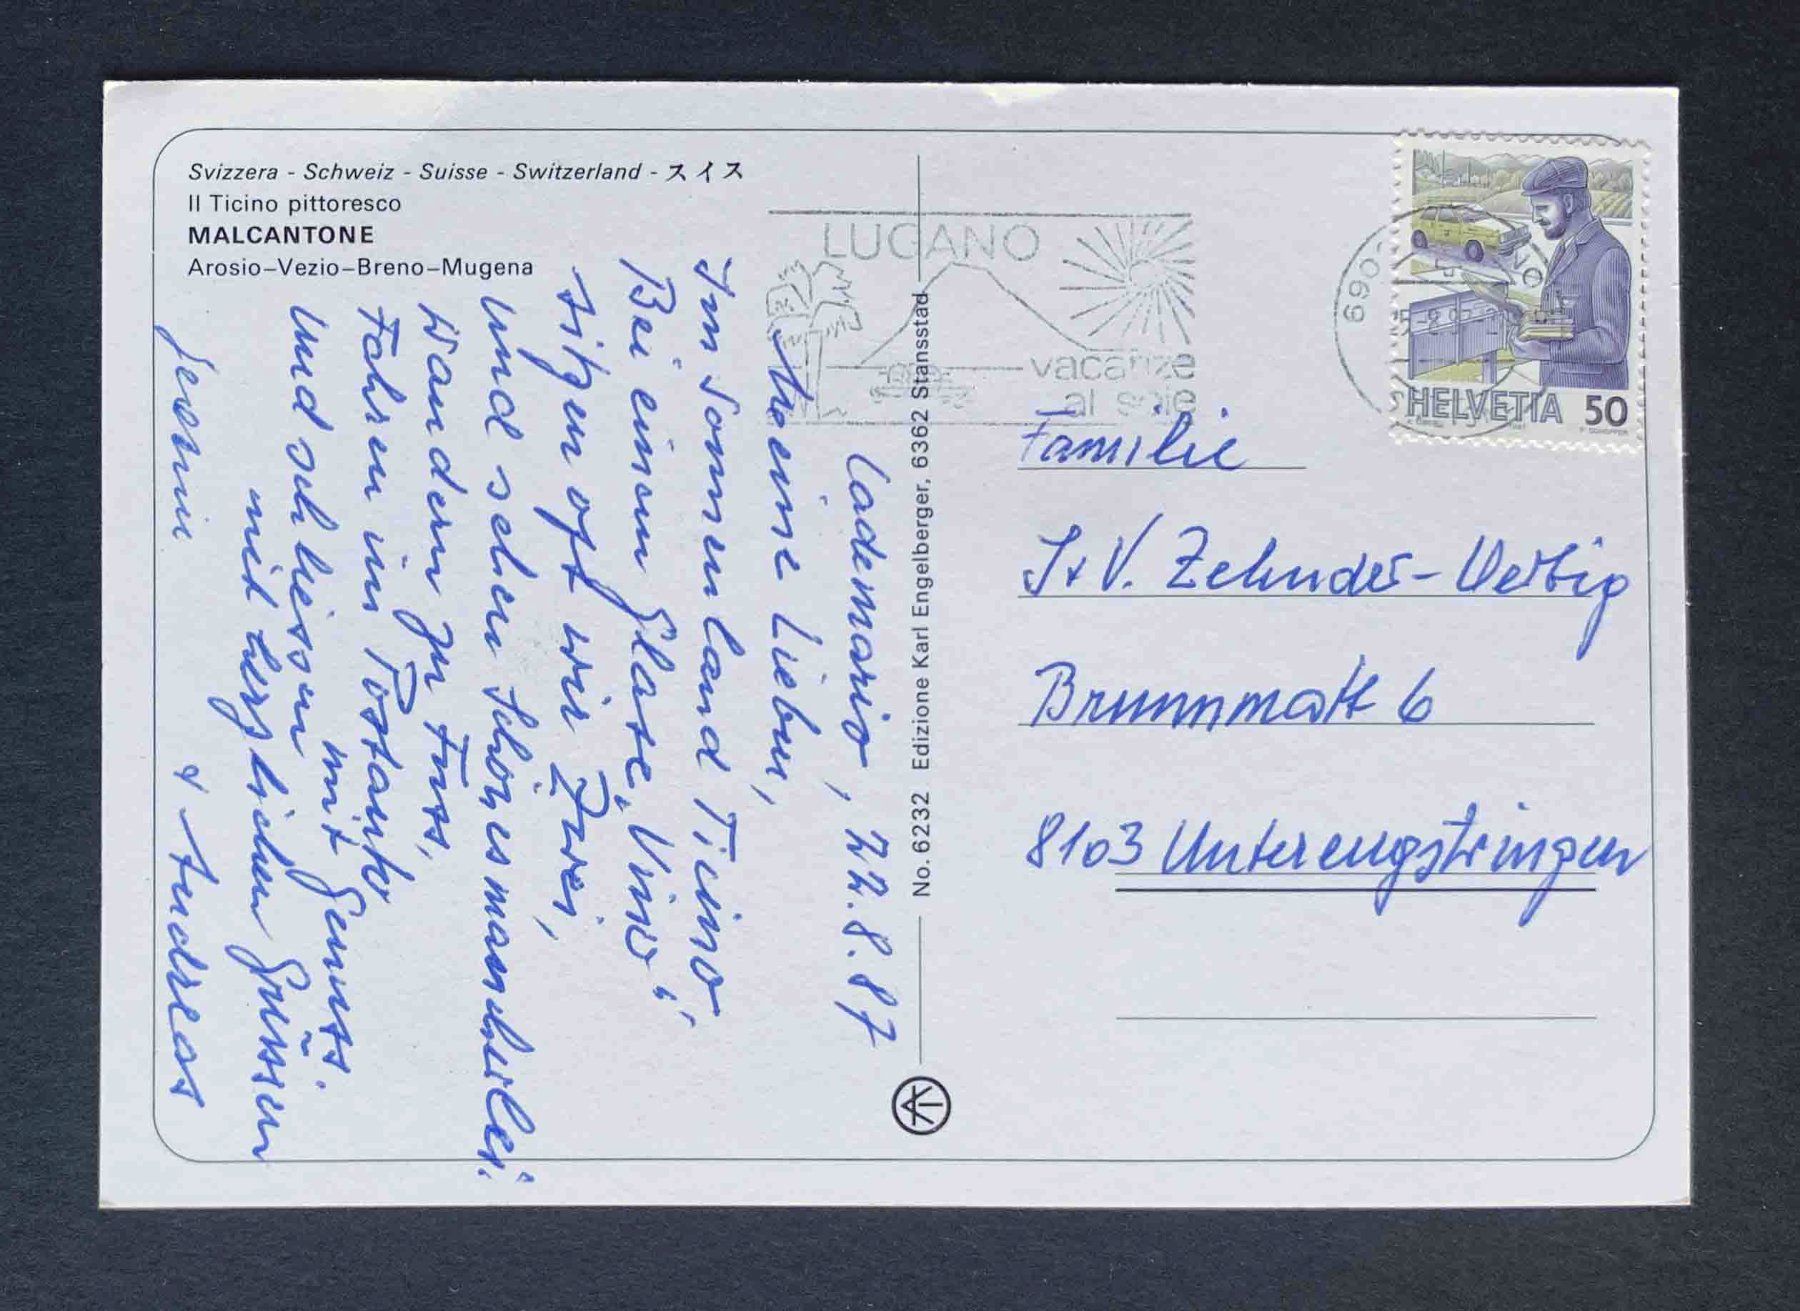 Svizzera - Schweiz - Suisse - Switzerland - スイス
Il Ticino pittoresco
MALCANTONE
Arosio–Vezio–Breno–Mugena
LUGANO
vacanze
al sole
690
HELVETIA 50
No. 6232 Edizione Karl Engelberger, 6362 Stansstad
Cademario, 22.8.87
Meine Lieben,
Im Sonnenland Ticino,
Bei einem Glase „Vino“
sitzen oft wir Zwei,
und sehen Schönes mancherlei.
Wandern zu Fuss,
Fahren im Postauto
mit Genuss.
Und schliessen
mit herzlichen Grüssen
& Andreas
Familie
J + V. Zehnder-Uerbig
Brunnmatt 6
8103 Unterengstringen